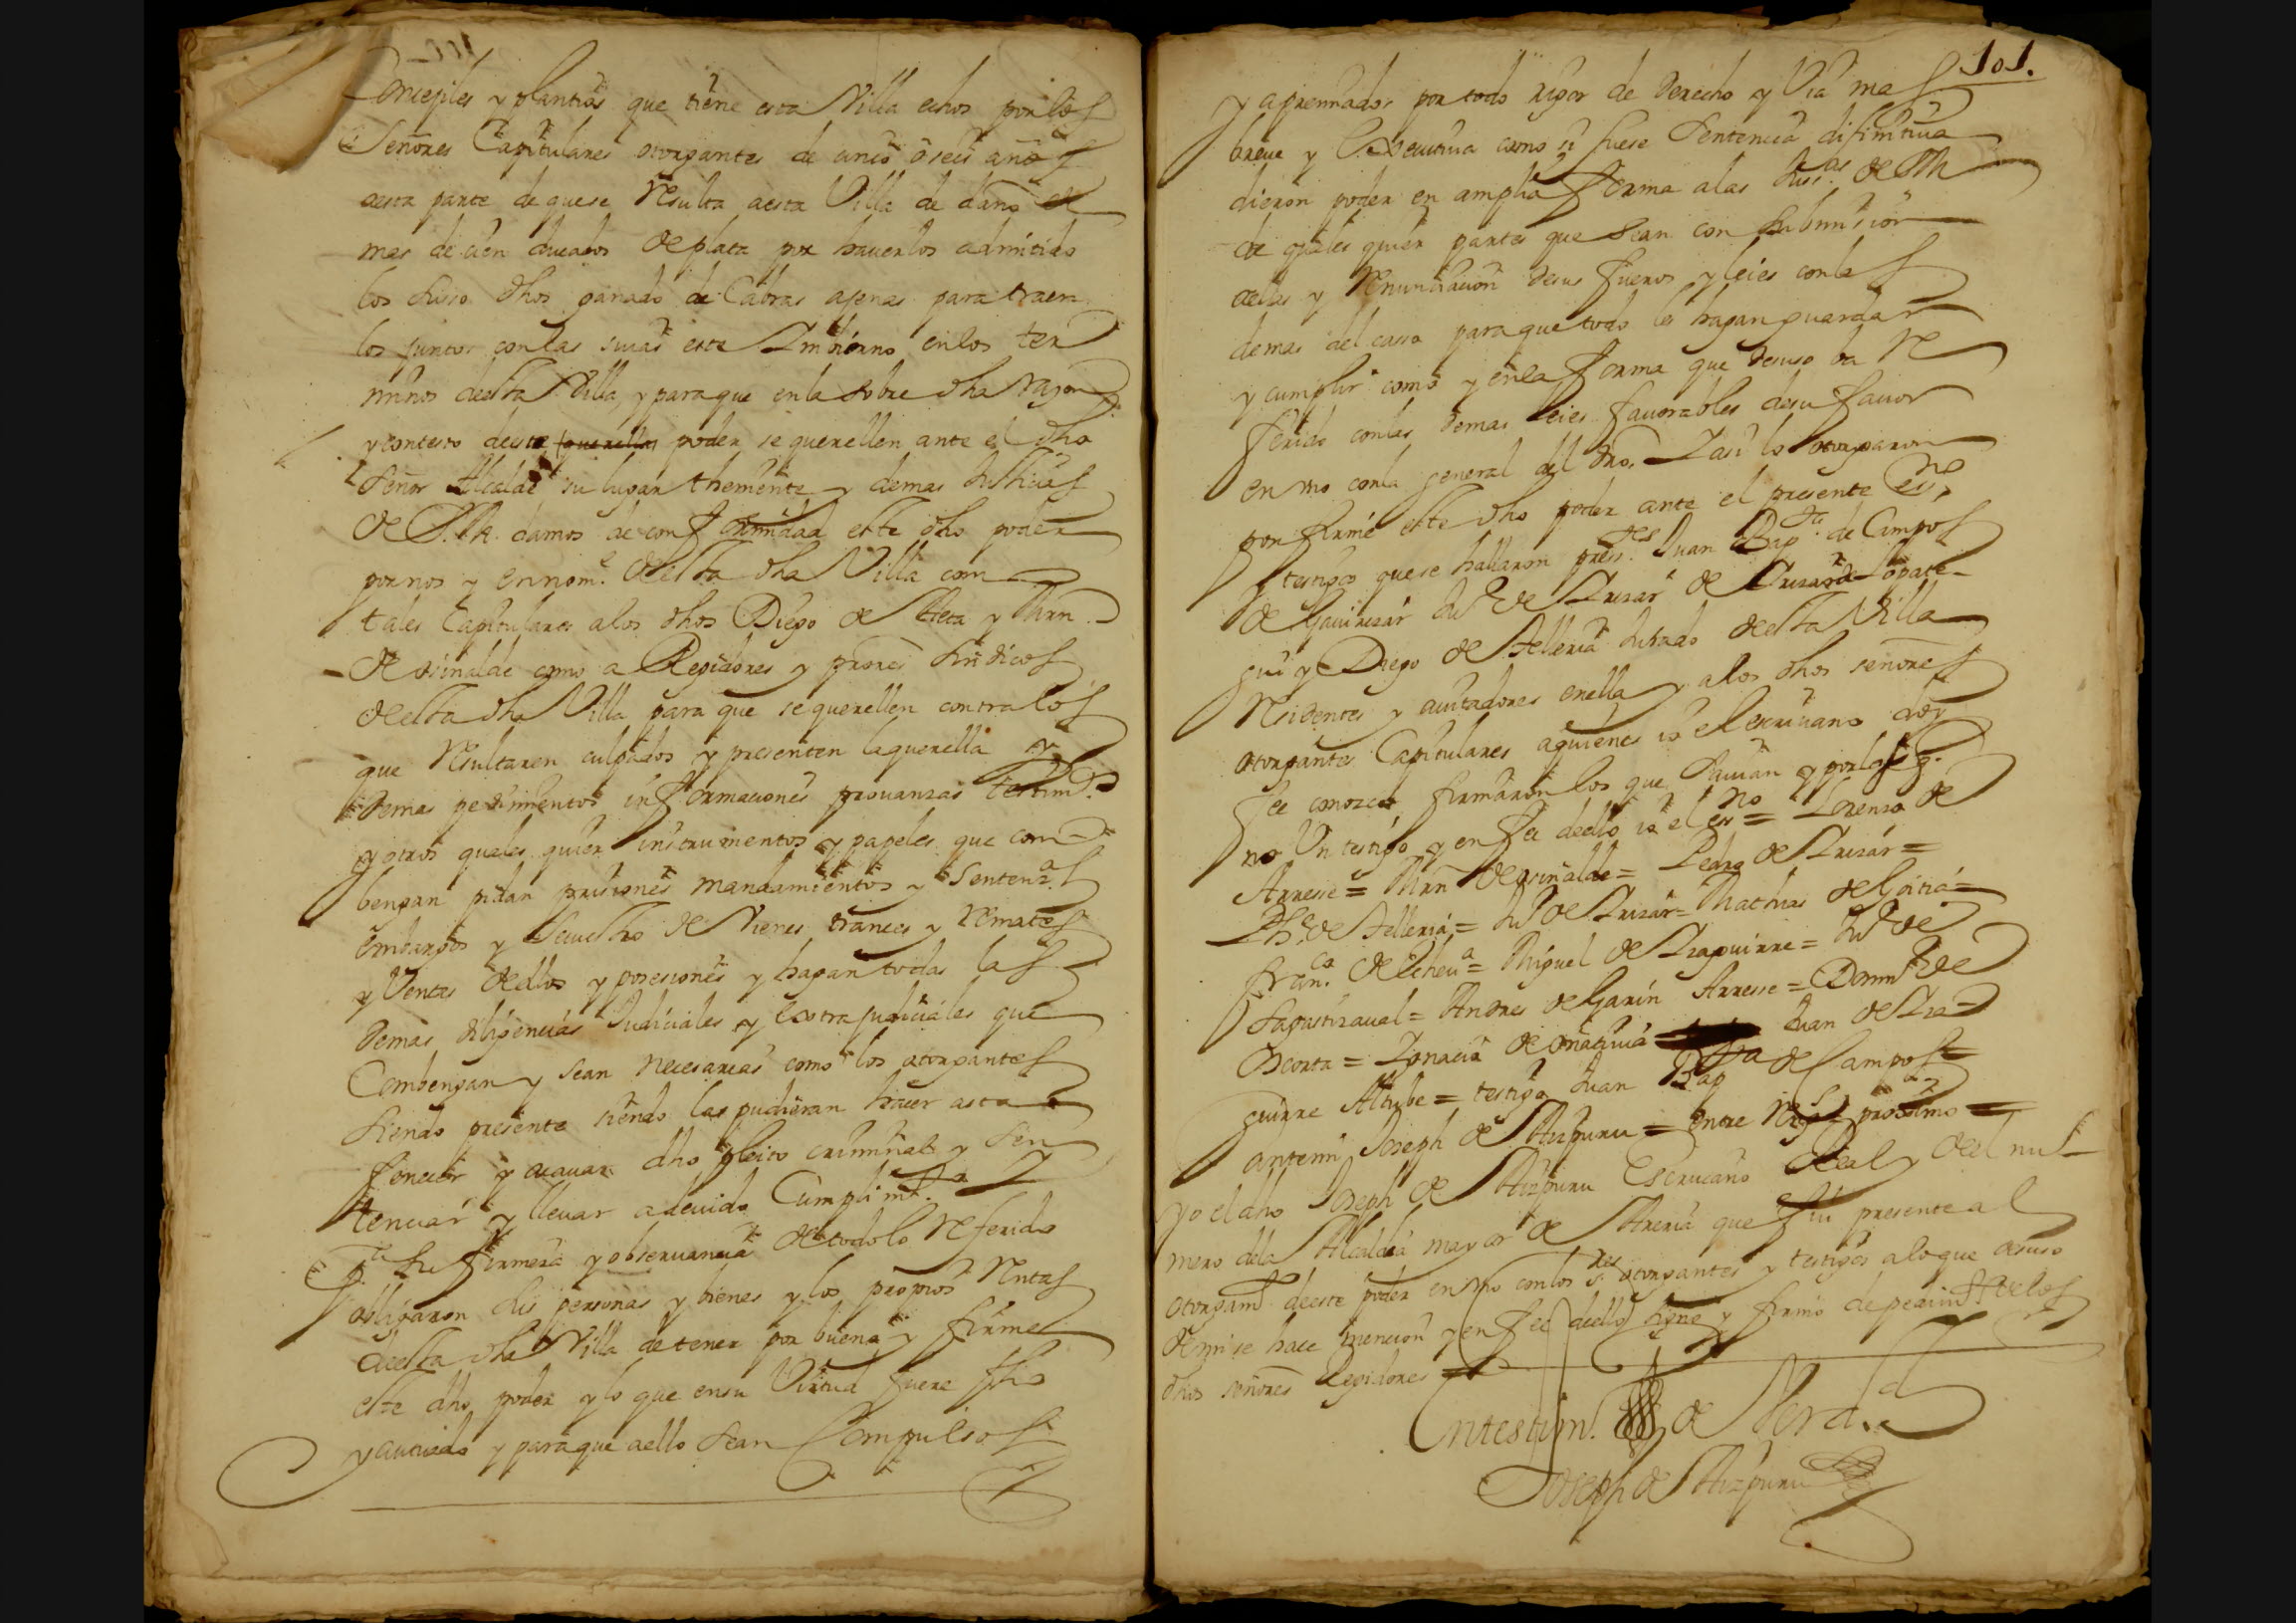 Concejiles y plantios que tiene esta Villa echos por los
Señores Capitulares otorgantes de cinco o seis años
aesta parte de que se Resulta aesta Villa de daño en
mas de cien ducados de plata por hauerlos admitido
los suso dhos ganado de Cabras ajenas para traer
los juntos con las suias este Imbierno en los ter
minos desta Villa, y para que en la sobre dha rrazon
y contesto deeste querella poder se querellen ante el dho
Señor Alcalde su lugar theniente y demas Justicias
de S. M. damos de conformidad este dho poder
por nos y en nom.e desta dha Villa com
tales Capitulares alos dhos Diego de y Mrn
de Orinalde como a Regidores y prores sindicos
desta dha Villa para que se querellen contra los
que Resultaren culpados y presenten la querella y
demas pedimentos informaciones prouanzas testim.os
y otros quales quier instrumentos y papeles que com
bengan pidan prisiones mandamientos y Senten.as
embargos y Secuestro de Vienes trances y remates
y Ventas dellos y posesiones y hagan todas las
demas diligencias Judiciales y extrajudiciales que
Combengan y sean necesarias como los otorgantes
siendo presente siendo las pudieran hacer asta
fenecer y acauar dho pleito criminal y sen
tenciar y llevar a deuido Cumplim.to
su firmeza y obseruancia de todo lo Referido
obligaron sus personas y bienes y los propios Rentas
deesta dha Villa de tener por buena y firme
este dho poder y lo que en su Virtud fuere fho
y autuado y para que aello sean Compulsos
101.
y apremiados por todo rigor de derecho y Via mas
breue y Executiua como si fuese Sentencia difinitiua
dieron poder en amplia forma alas Jus.as de S M
de quales quier partes que sean con submision
aellas y Renunciacion desus fueros y leies con las
demas del caso para que todo les hagan guardar
y cumplir como y en la forma que desuso ba Re
ferido con las demas leies fauorables desu fauor
en vno con la general del dro. I asi lo otorgaron
por firme este dho poder ante el presente ess.no
testigos que se hallaron press.tes Juan Bap.ta de Campos
de Gauirizar Ju.o de Irizar de
gui y Diego de Telleria Jurado deesta Villa
Residentes y auitadores enella y alos dhos señores
otorgantes Capitulares aquienes io el escriuano doy
fee conozco firmaron los que sauian y por los q.
no Vn testigo y en fee deello io el ess.no = Lorenzo de
Arrese = Mrn de Orinalde = Pedro de Irizar =
Ph.e de Telleria = Ju.o de Irizar = Mathias de Goitia =
Fran.co de Echeu.a = Miguel de Iraguirre = Ju.o de
Sagastizaual = Andres de Garin Arrese = Domin.o de
Scorta = Ignacio de Oñatiuia = Juan de Ira
guirre Altube = testigo Juan Bap.ta de Campos =
antemi Joseph de Aizpuru = entre Reng.s proximo =
yo el dho Joseph de Aizpuru Escriuano Real y del nu
mero dela Alcaldia mayor de Areria que fui presente al
otorgam.to deeste poder en vno con los s.res otorgantes y testigos alo que desuso
de mi se hace mencion y en fee deello signe y firmo de pedim.to delos
dhos señores Regidores
En testim.o de Verd.d
Joseph de Aizpuru